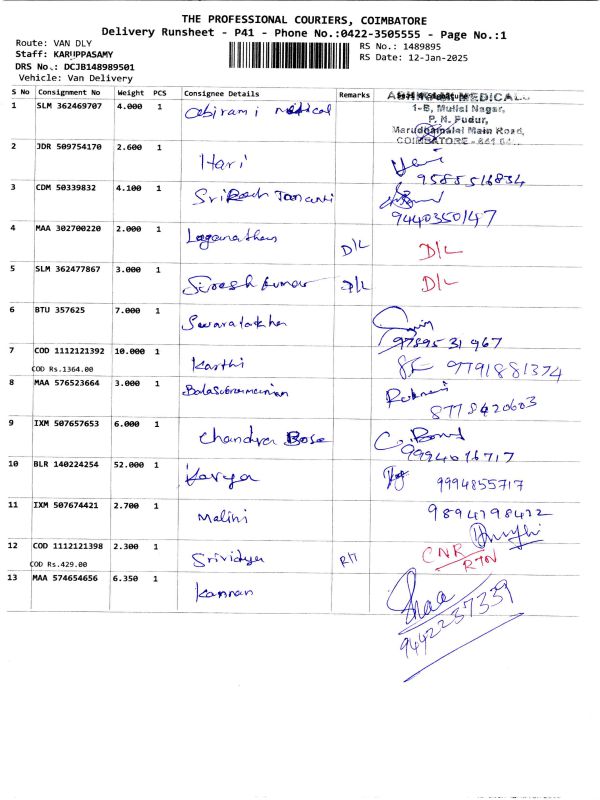 THE PROFESSIONAL COURIERS, COIMBATORE
Delivery Runsheet - P41 - Phone No.:0422-3505555 - Page No.:1
Route: VAN DLY
Staff: KARUPPASAMY
DRS No.: DCJB148989501
Vehicle: Van Delivery
RS No.: 1489895
RS Date: 12-Jan-2025
S No Consignment No Weight PCS Consignee Details Remarks
1 SLM 362469707 4.000 1 Abirami Medical
MEDICAL
1-B, Mullai Nagar,
P. N. Pudur,
Marudhamalai Main Road,
COIMBATORE - 641 04
2 JDR 509754170 2.600 1 Hari Hari
9585516834
3 CDM 50339832 4.100 1
9440350147
4 MAA 302700220 2.000 1 Loganathan D/L D/L
5 SLM 362477867 3.000 1 Suresh Kumar D/L D/L
6 BTU 357625 7.000 1
9789531967
7 COD 1112121392 10.000 1 Karthi 9791881374
COD Rs.1364.00
8 MAA 576523664 3.000 1 Balasubramanian
8778420603
9 IXM 507657653 6.000 1 Chandra Bose
9994016717
10 BLR 140224254 52.000 1 Kavya 9994855717
11 IXM 507674421 2.700 1 Malini 9894298422
12 COD 1112121398 2.300 1 Srividya CNR
COD Rs.429.00 RTN
13 MAA 574654656 6.350 1 Kannan
9442237339